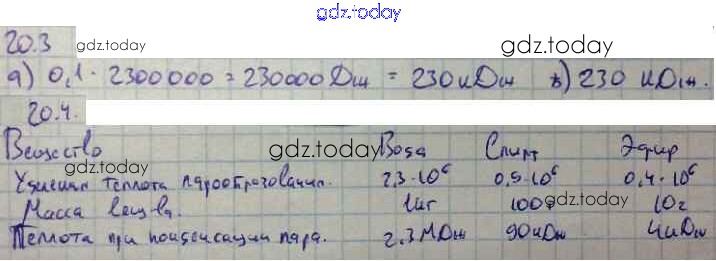 gdz.today
20.3 gdz.today gdz.today
а) 0,1 · 2300000 = 230000 Дж = 230 кДж б) 230 кДж.
20.4.
Вещество gdz.today Вода Спирт Эфир
gdz.today gdz.today
Удельная теплота парообразования. 2,3·10⁶ 0,9·10⁶ 0,4·10⁶
Масса вещ-ва. 1кг 100г 10г
Теплота при конденсации пара. 2.3 МДж 90кДж 4кДж